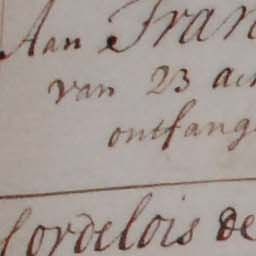 Aan Fran
van 23 ac
ontfang
Cordelois de